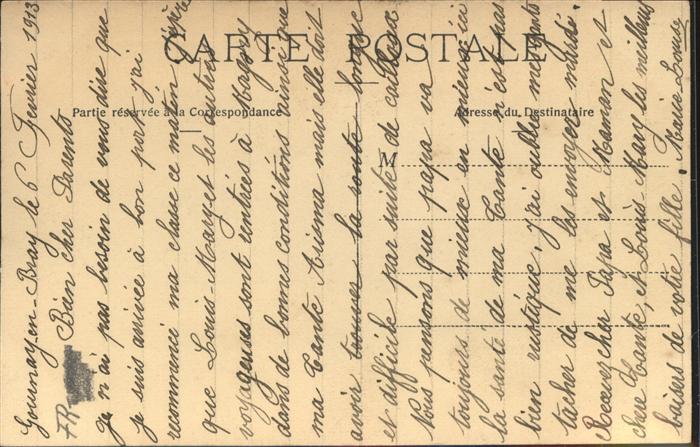 CARTE POSTALE
Partie réservée à la Correspondance
Adresse du Destinataire
M
Gournay-en-Bray le 6 Fevrier 1913
Bien cher Parents
FR
Je n'ai pas besoin de vous dire que
je suis arrivée à bon port j'ai
recommencé ma classe ce matin
que Louis-Mary et les autres
voyageuses sont rentrés à Magny
dans de bonnes conditions ainsi que
ma Tante mais elle doit
avoir trouver la route longue
et difficile par suite de
Nous pensons que papa va
toujours de mieux en mieux ici
la santé de ma Tante n'est pas
bien rustique, j'ai oublié mes gants
tâcher de me les envoyer mardi.
Recevez cher Papa et Maman et
chere Tante, et Louis Mary les meilleurs
baisers de votre fille. Marie-Louise